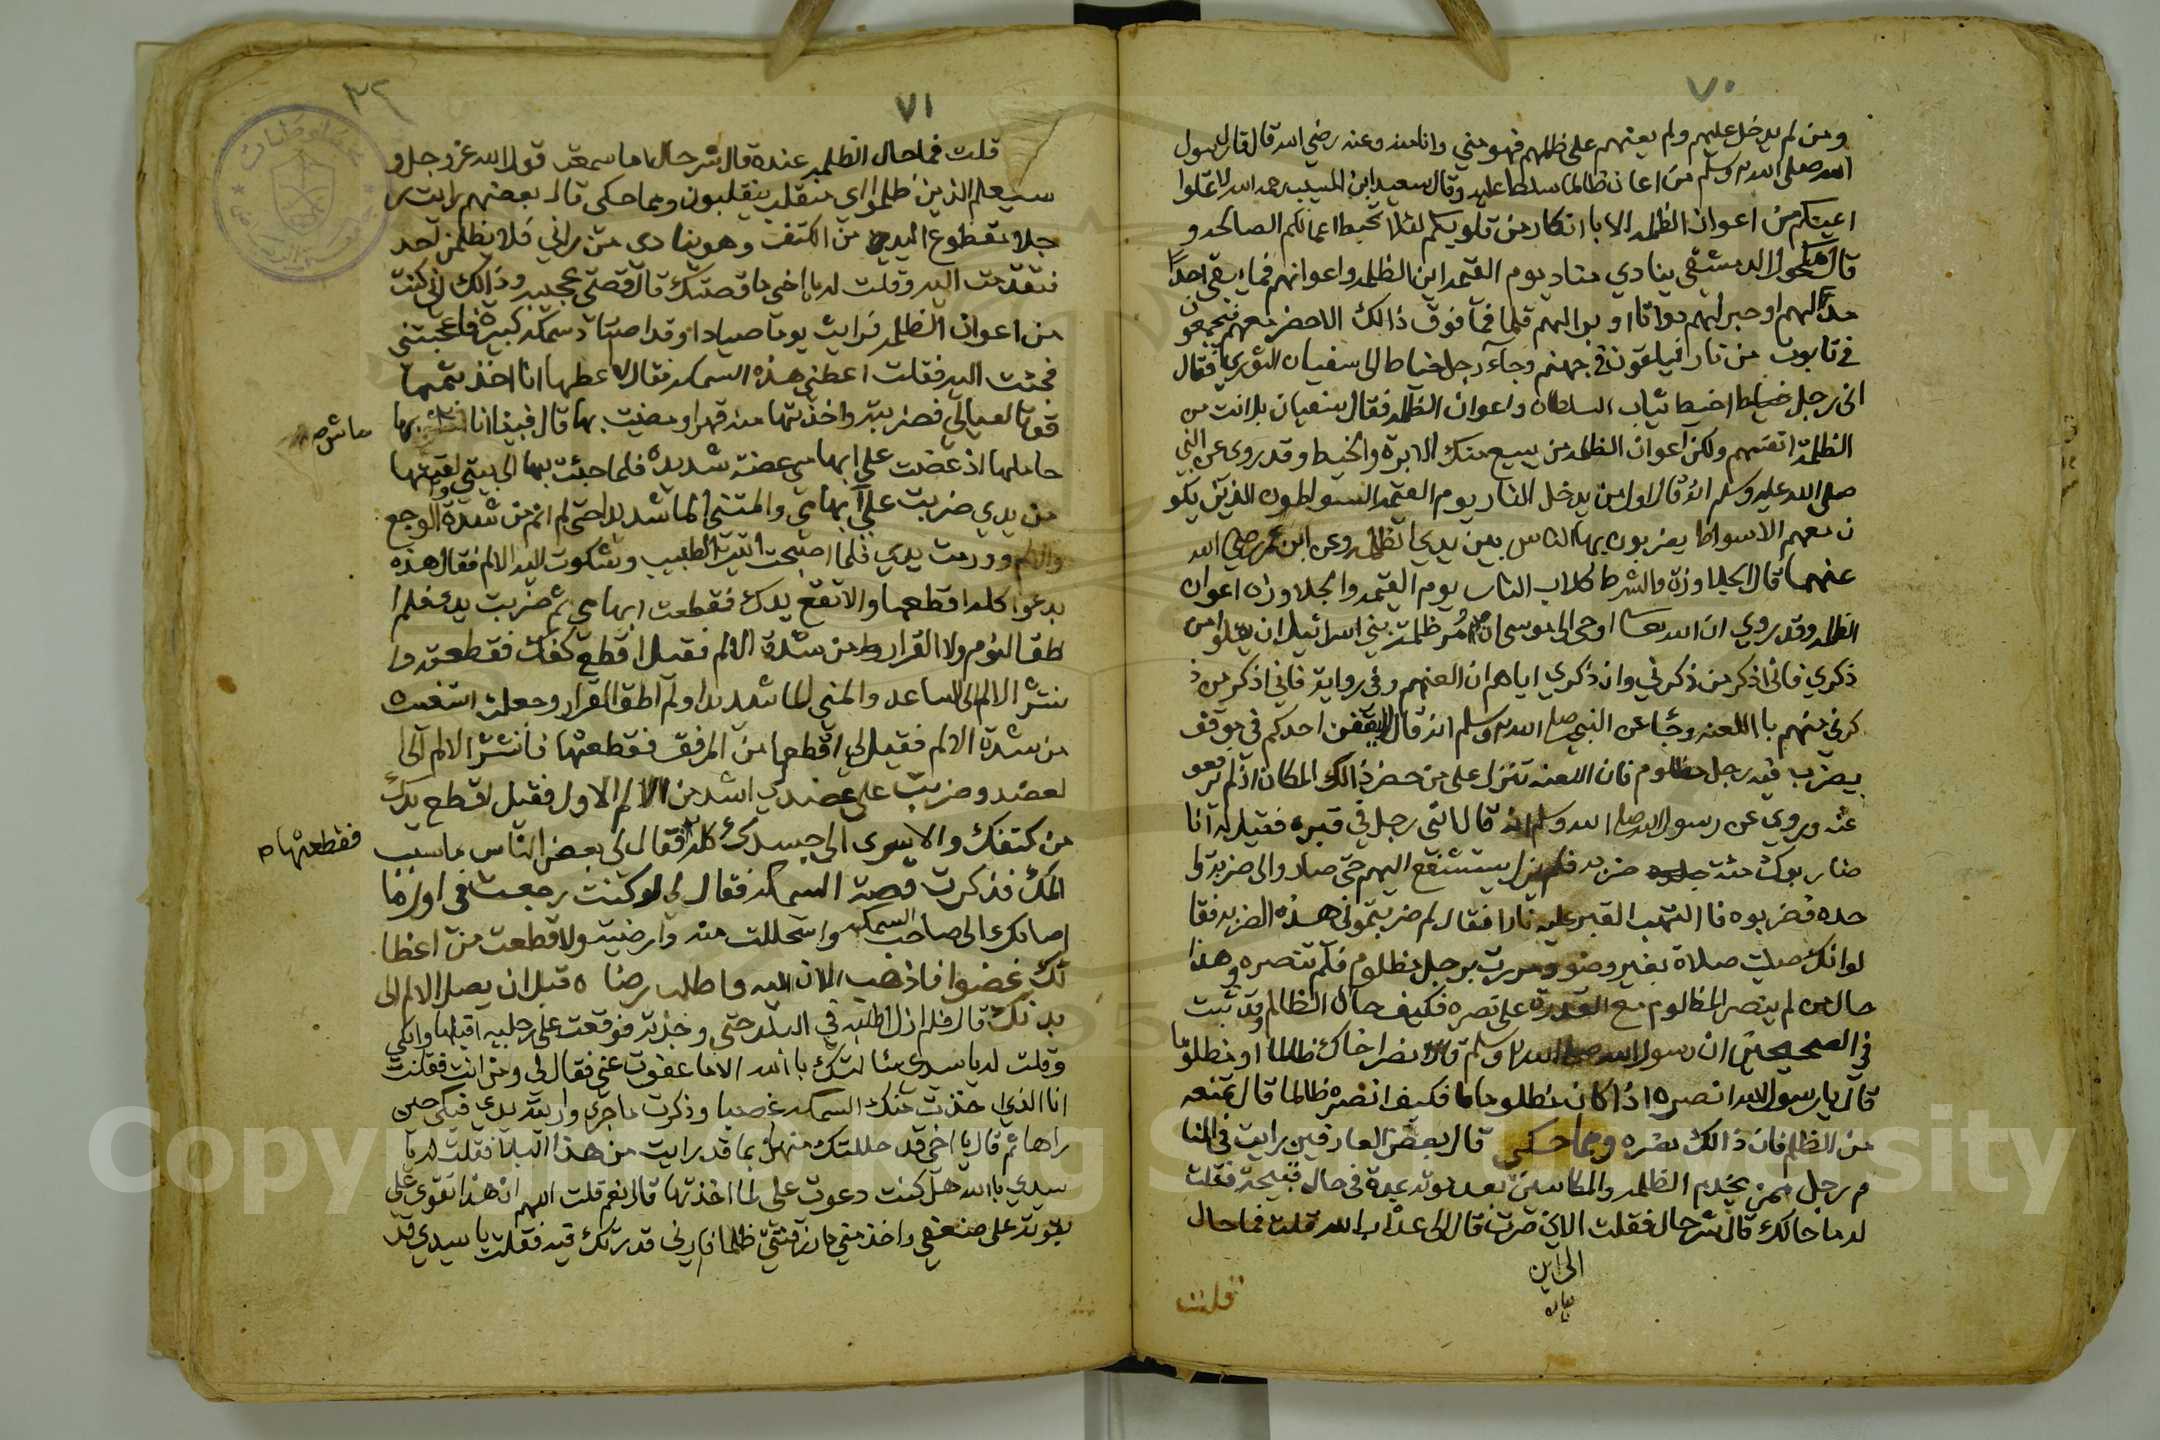 ٧٠
ومن لم يدخل عليهم ولم يعنهم على ظلمهم فهو مني وانا منه وعنه رضي الله قال قال رسول
الله صلى الله وسلم من اعان ظالما سلط عليه وقال سعيد ابن المسيب رحمه الله لا تملوا
اعينكم من اعوان الظلمه الا با انكار من قلوبكم لئلا تحبط اعمالكم الصالحه و
قال مكحول الدمشقي ينادي مناد يوم القيمه اين الظلمه واعوانهم فما يبقى احدا
مد لهم او حبر لهم دواتا او برا لهم قلما فما فوق ذالك الا حضر معهم فيجمعون
في تابوت من نار فيلقون في جهنم وجآء رجل خياط الى سفيان الثوري فقال
انى رجل خياط اخيط ثياب السلطان واعوان الظلمه فقال سفيان بل انت من
الظلمة انفسهم ولكن اعوان الظلمه من يبيع منك الابرة والخيط وقد روي عن النبي
صلى الله عليه وسلم انه قال اول من يدخل النار يوم القيمه السواطون الذين يكو
ن معهم الاسواط يضربون بها الناس بين يدي الظلمه وعن ابن عمر رضي الله
عنهما قال الجلاوزة والشرط كلاب النار يوم القيمه والجلاوزه اعوان
الظلمه وقد روي ان الله تعا اوحى الى موسى ان مُر ظلمة بني اسرائيل ان يقلوا من
ذكري فانى اذكر من ذكرني وان ذكري اياهم ان العنهم وفي رواية فاني اذكر من ذ
كرني منهم با اللعنه وجا عن النبي صلى الله وسلم انه قال لا يقفن احدكم في موقف
يضرب فيه رجل مظلوم فان اللعنه تنزل على من حضر ذالك المكان اذا لم يدفعو
عنه وروي عن رسول الله صلى الله وسلم انه قال اتي رجل في قبره فقيل له انا
ضاربوك مئة جلده ضربه فلم يزل يستشفع اليهم حتى صار والى ضربة وا
حده فضربوه فا التهب القبر عليه نارا فقال لم ضربتموني هذه الضربه فقا
لوا انك صليت صلاة بغير وضو ومررت برجل مظلوم فلم تنصره وهذا
حال من لم ينصر المظلوم مع القدرة على نصره فكيف حال الظالم وقد ثبت
في الصحيحين ان رسول الله صلى الله وسلم قال انصر اخاك ظالما او مظلوما
قال يا رسول الله انصره اذا كان مظلوما فكيف انصره ظالما قال تمنعه
من الظلم فان ذالك نصره ومما حكى قال بعض العارفين رايت في المنا
م رجل ممن يخدم الظلمه والمكاسين بعد موته بمدة في حال قبيحة فقلت
له ما حالك قال شر حال فقلت الى اين صرت قال الى عذاب الله قلت فما حال
الى اين
قلت
٧١
٣٢
قلت فما حال الظلمه عنده قال شر حال اما سمعت قول الله عز وجل و
سيعلم الذين ظلموا اي منقلب ينقلبون ومما حكى قال بعضهم رايت ر
جلا مقطوع اليدين من الكتف وهو ينادى من راني فلا يظلمن احد
فتقدمت اليه وقلت له يا اخى ما قصتك قال قصتي عجيبه وذالك اني كنت
من اعوان الظلمه فرايت يوما صيادا وقد اصتاد سمكه كبيرة فاعجبتني
فجئت اليه فقلت اعطني هذه السمكه فقال لا اعطيها انا اخذ بثمنها
قوتا لعيالي فضربته واخذتها منه قهرا ومضيت بها قال فبينا انا بها
ماش ص
حاملها اذ عضت على ابهامي عضة شديدة فلما جئت بها الى بيتي والقيتها
من يدي ضربت علي ابهامي والمتني الما شديدا حتى لم انم من شدة الوجع
والالم وورمت يدي فلما اصبحت اتيت الطبيب وشكوت اليه الالم فقال هذه
بدء اكله اقطعها والا تقع يدك فقطعت ابهامي ثم ضربت يدي فلم ا
طق النوم ولا القرار من شدة الالم فقيل اقطع كفك فقطعته وا
نتشر الالم الى الساعد والمني الما شديدا ولم اطق القرار وجعلت استغيث
من شدة الالم فقيل لي اقطعها من المرفق فقطعتها فانتشر الالم الى ا
لعضد وضربت على عضدي اشد من الالم الاول فقيل اقطع يدك
من كتفك والا يسرى الى جسدك كله فقال لي بعض الناس ما سبب
فقطعتها ص
المك فذكرت قصة السمكه فقال لي لو كنت رجعت في اول ما
اصابك الى صاحب السمكه واستحللت منه وارضيته ولا قطعت من اعضا
ئك عضوا فاذهب الان اليه واطلب رضاه قبل ان يصل الالم الى
بدنك قال فلم ازل اطلبه في البلد حتى وجدته فوقعت على رجليه اقبلها وابكي
وقلت له يا سيدي سئالتك با الله الا ما عفوت عني فقال لي ومن انت فقلت
انا الذي اخذت منك السمكه غصبا وذكرت ما جرى واريته يدي فبكى حين
راها ثم قال يا اخى قد حللتك منها لما قد رايت من هذا البلا فقلت له يا
سيدي با الله هل كنت دعوت علي لما اخذتها قال نعم قلت اللهم ان هذا تقوى علي
بقوته على ضعفي واخذ مني ما رزقتني ظلما فارني قدرتك فيه فقلت يا سيدي قد